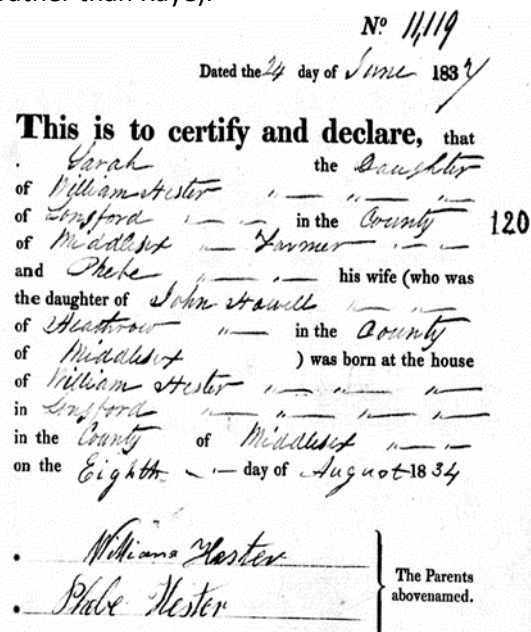 rather than Kaye).
No 11,119
Dated the 24 day of June 1837
This is to certify and declare, that
Sarah the Daughter
of William Hester " — " — "
of Longford " — " — in the County 120
of Middlesex " — Farmer " — "
and Phebe " — " — his wife (who was
the daughter of John Howell " — "
of Heathrow " — in the County
of Middlesex ) was born at the house
of William Hester " — " — "
in Longford " — " — " — "
in the County of Middlesex " — "
on the Eighth " — day of August 1834
William Hester
Phebe Hester
The Parents
abovenamed.